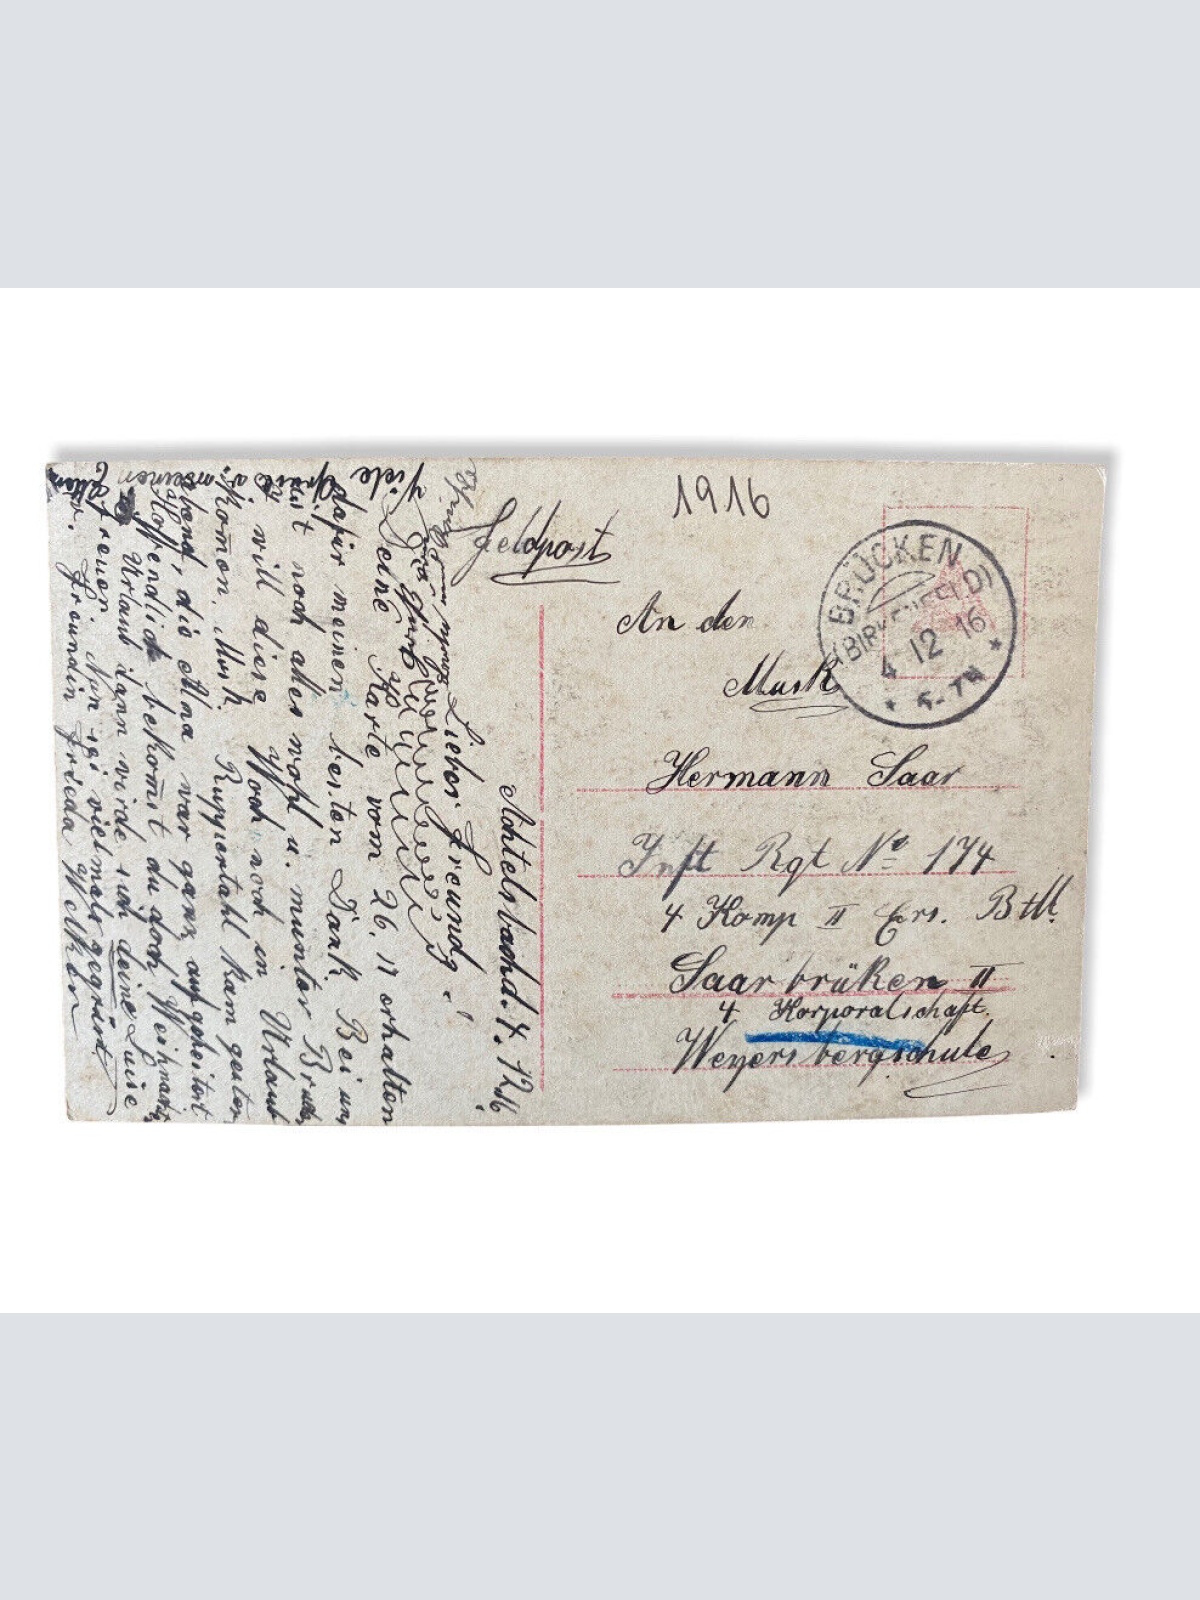 1916
Feldpost
BRÜCKEN
(BIRKENFELD)
4 12 16
5-7N
An den
Musk
Hermann Saar
Inft Rgt No 174
4 Komp II Ers. Btll.
Saarbrüken II
4 Korporalschaft.
Weyersbergschule
Achtelsbach d. 4. 12. 16
Lieber Freund!
Deine Karte vom 26. 11 erhalten
dafür meinen besten Dank Bei un
ist noch alles wohl u. munter Bruder
will diese Woch noch in Urlaub
komen. Musk. Ruppertahl kam gestern
abend, die Alna war ganz aufgeheitert
Hoffendlich bekomst du doch Weihnacht
Urlaub dann werde sich deine Luise
freuen Nun sei vielmals gegrüsst
v. Freundin Frieda
Viele Grüse v. meinen Eltern